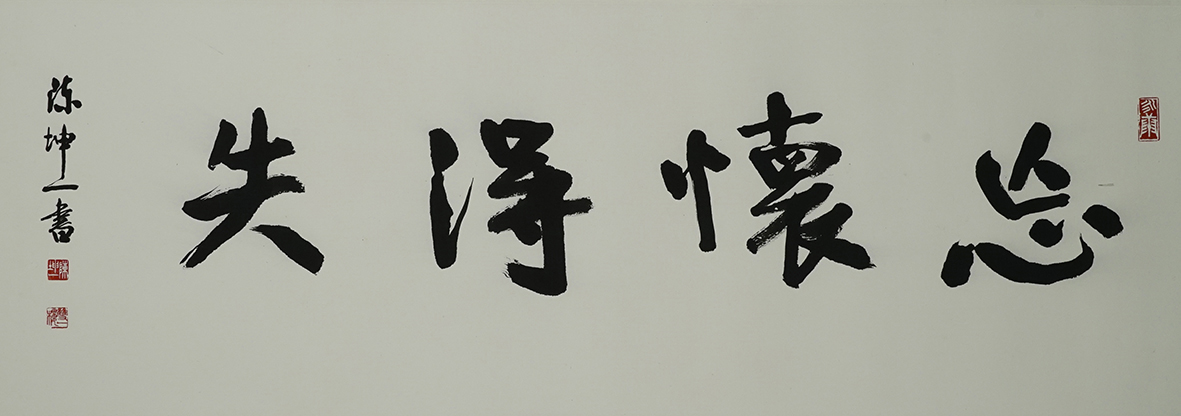 忘懷得失
陈坤一書